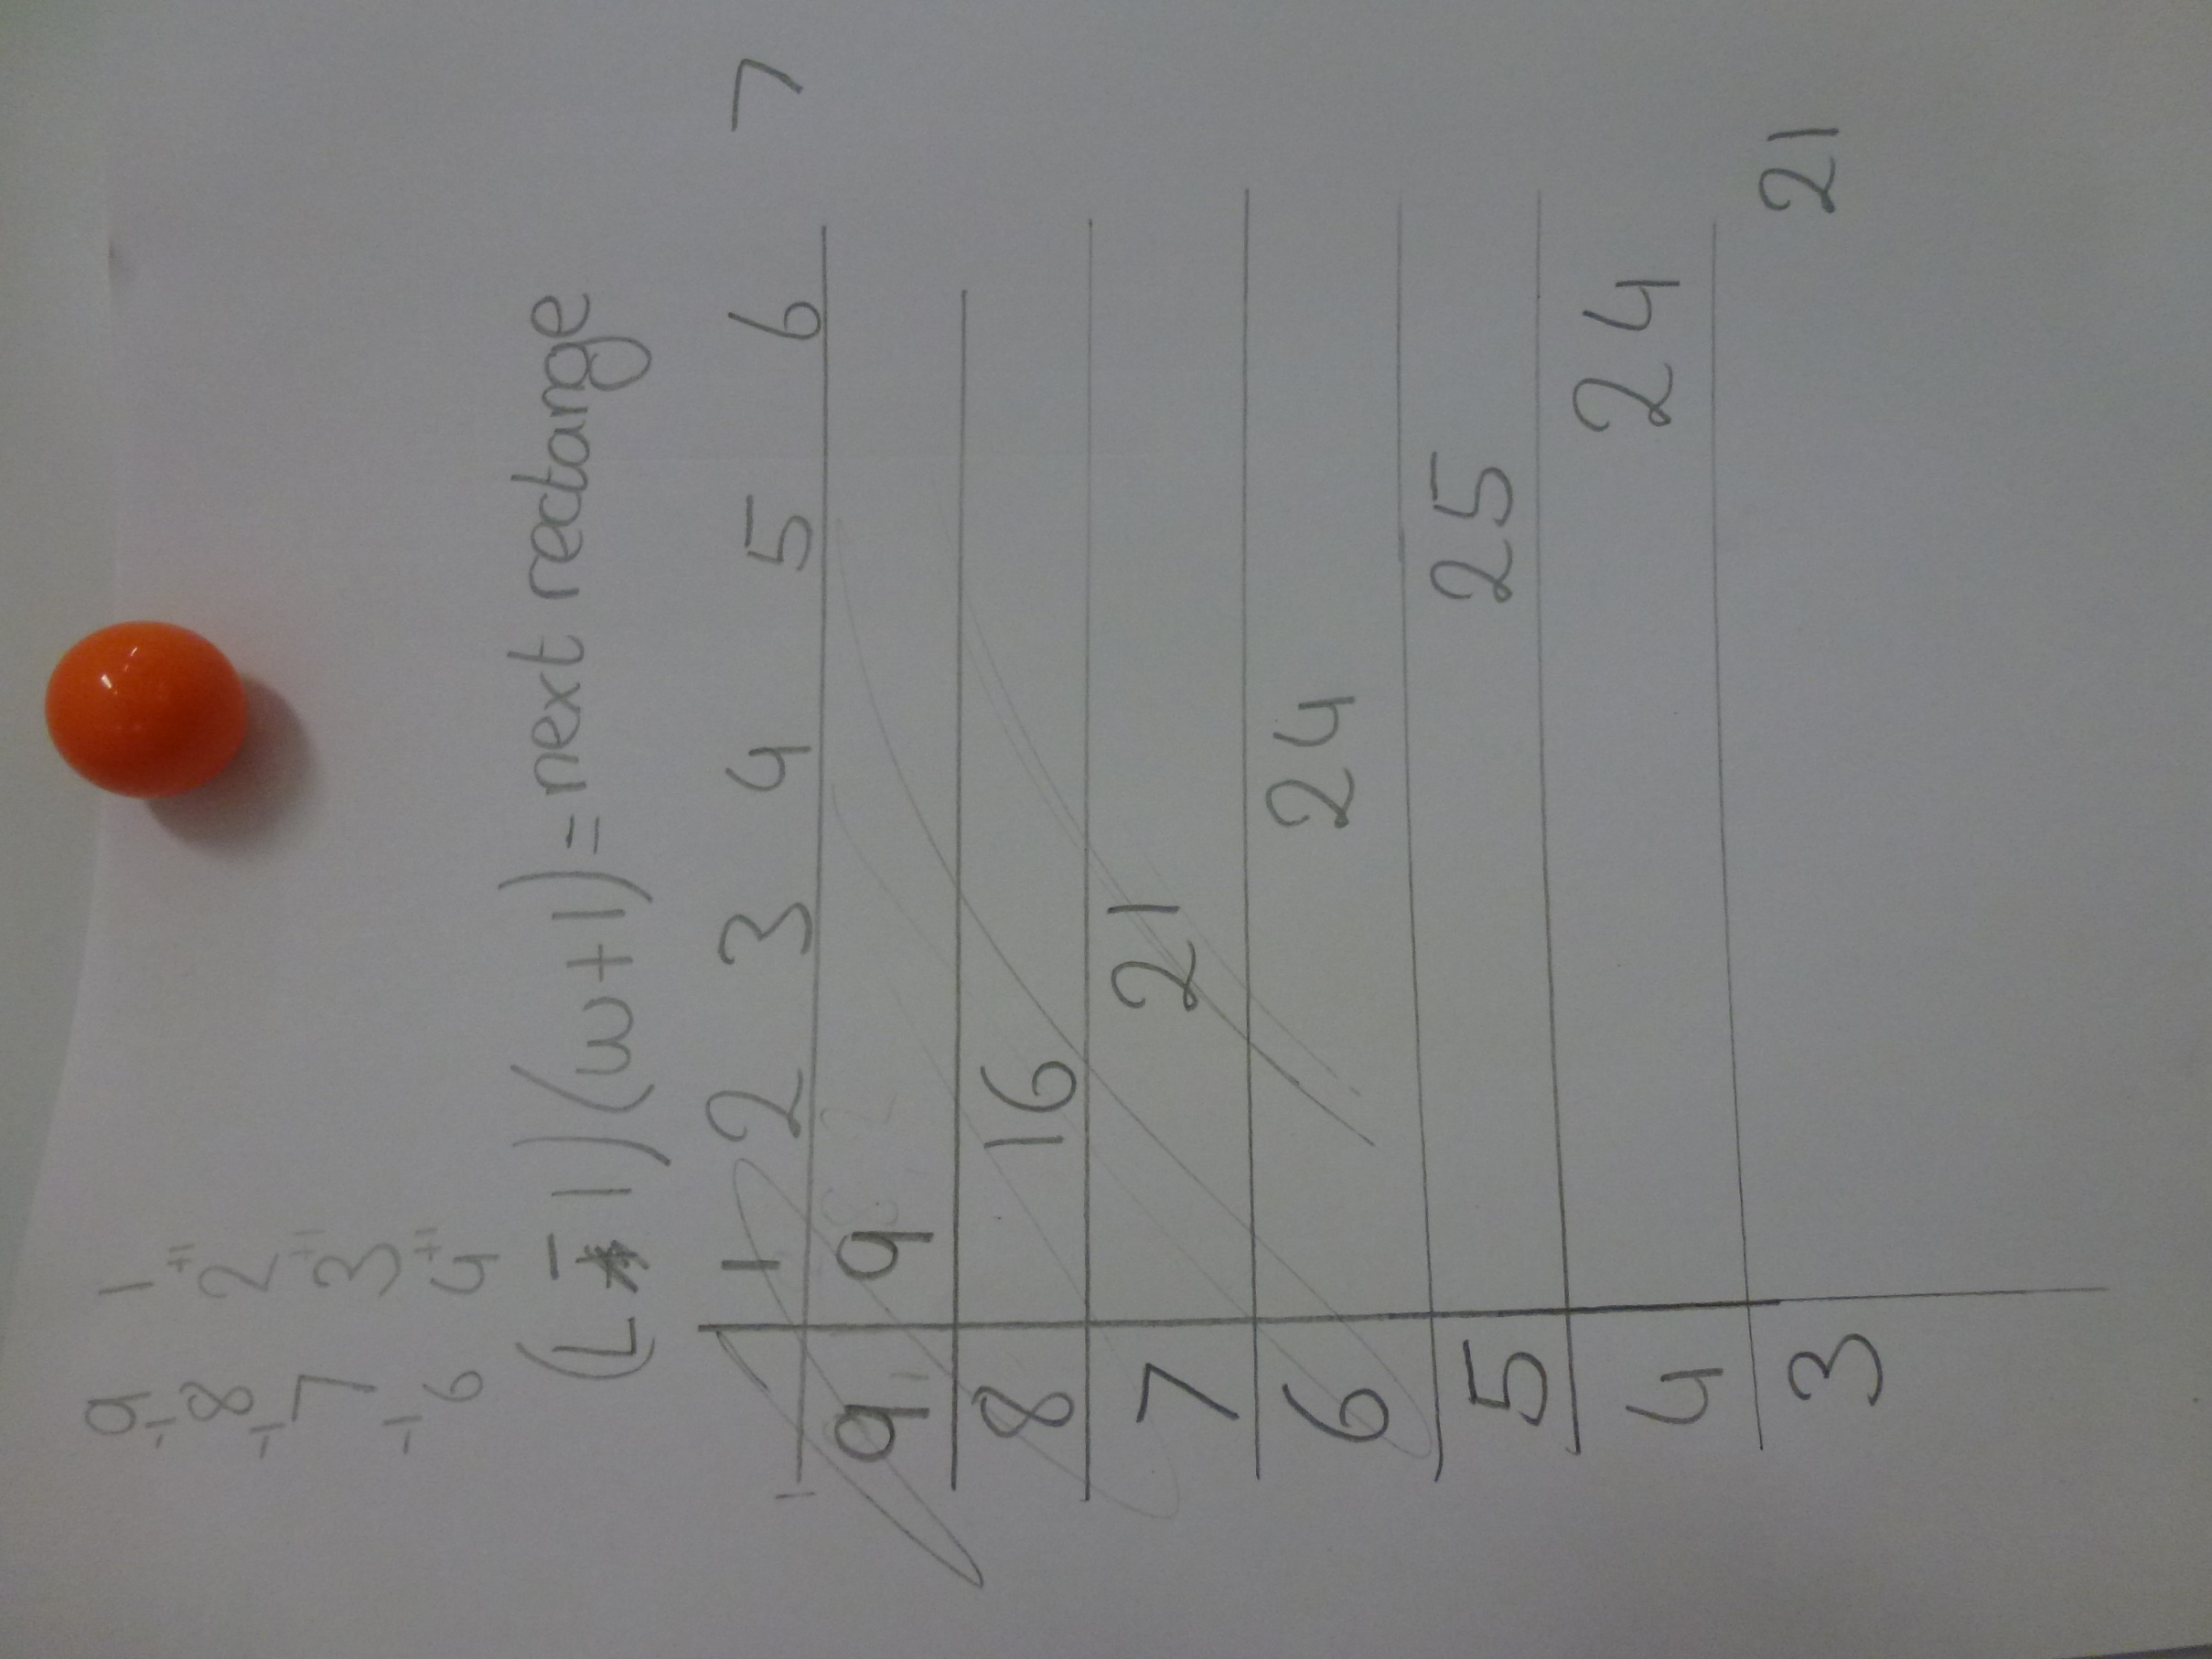 9 1
-1 +1
8 2
-1 +1
7 3
-1 +1
6 4
(L-1)(w+1)=next rectange
1 2 3 4 5 6 7
9 9
8 16
7 21
6 24
5 25
4 24
3 21